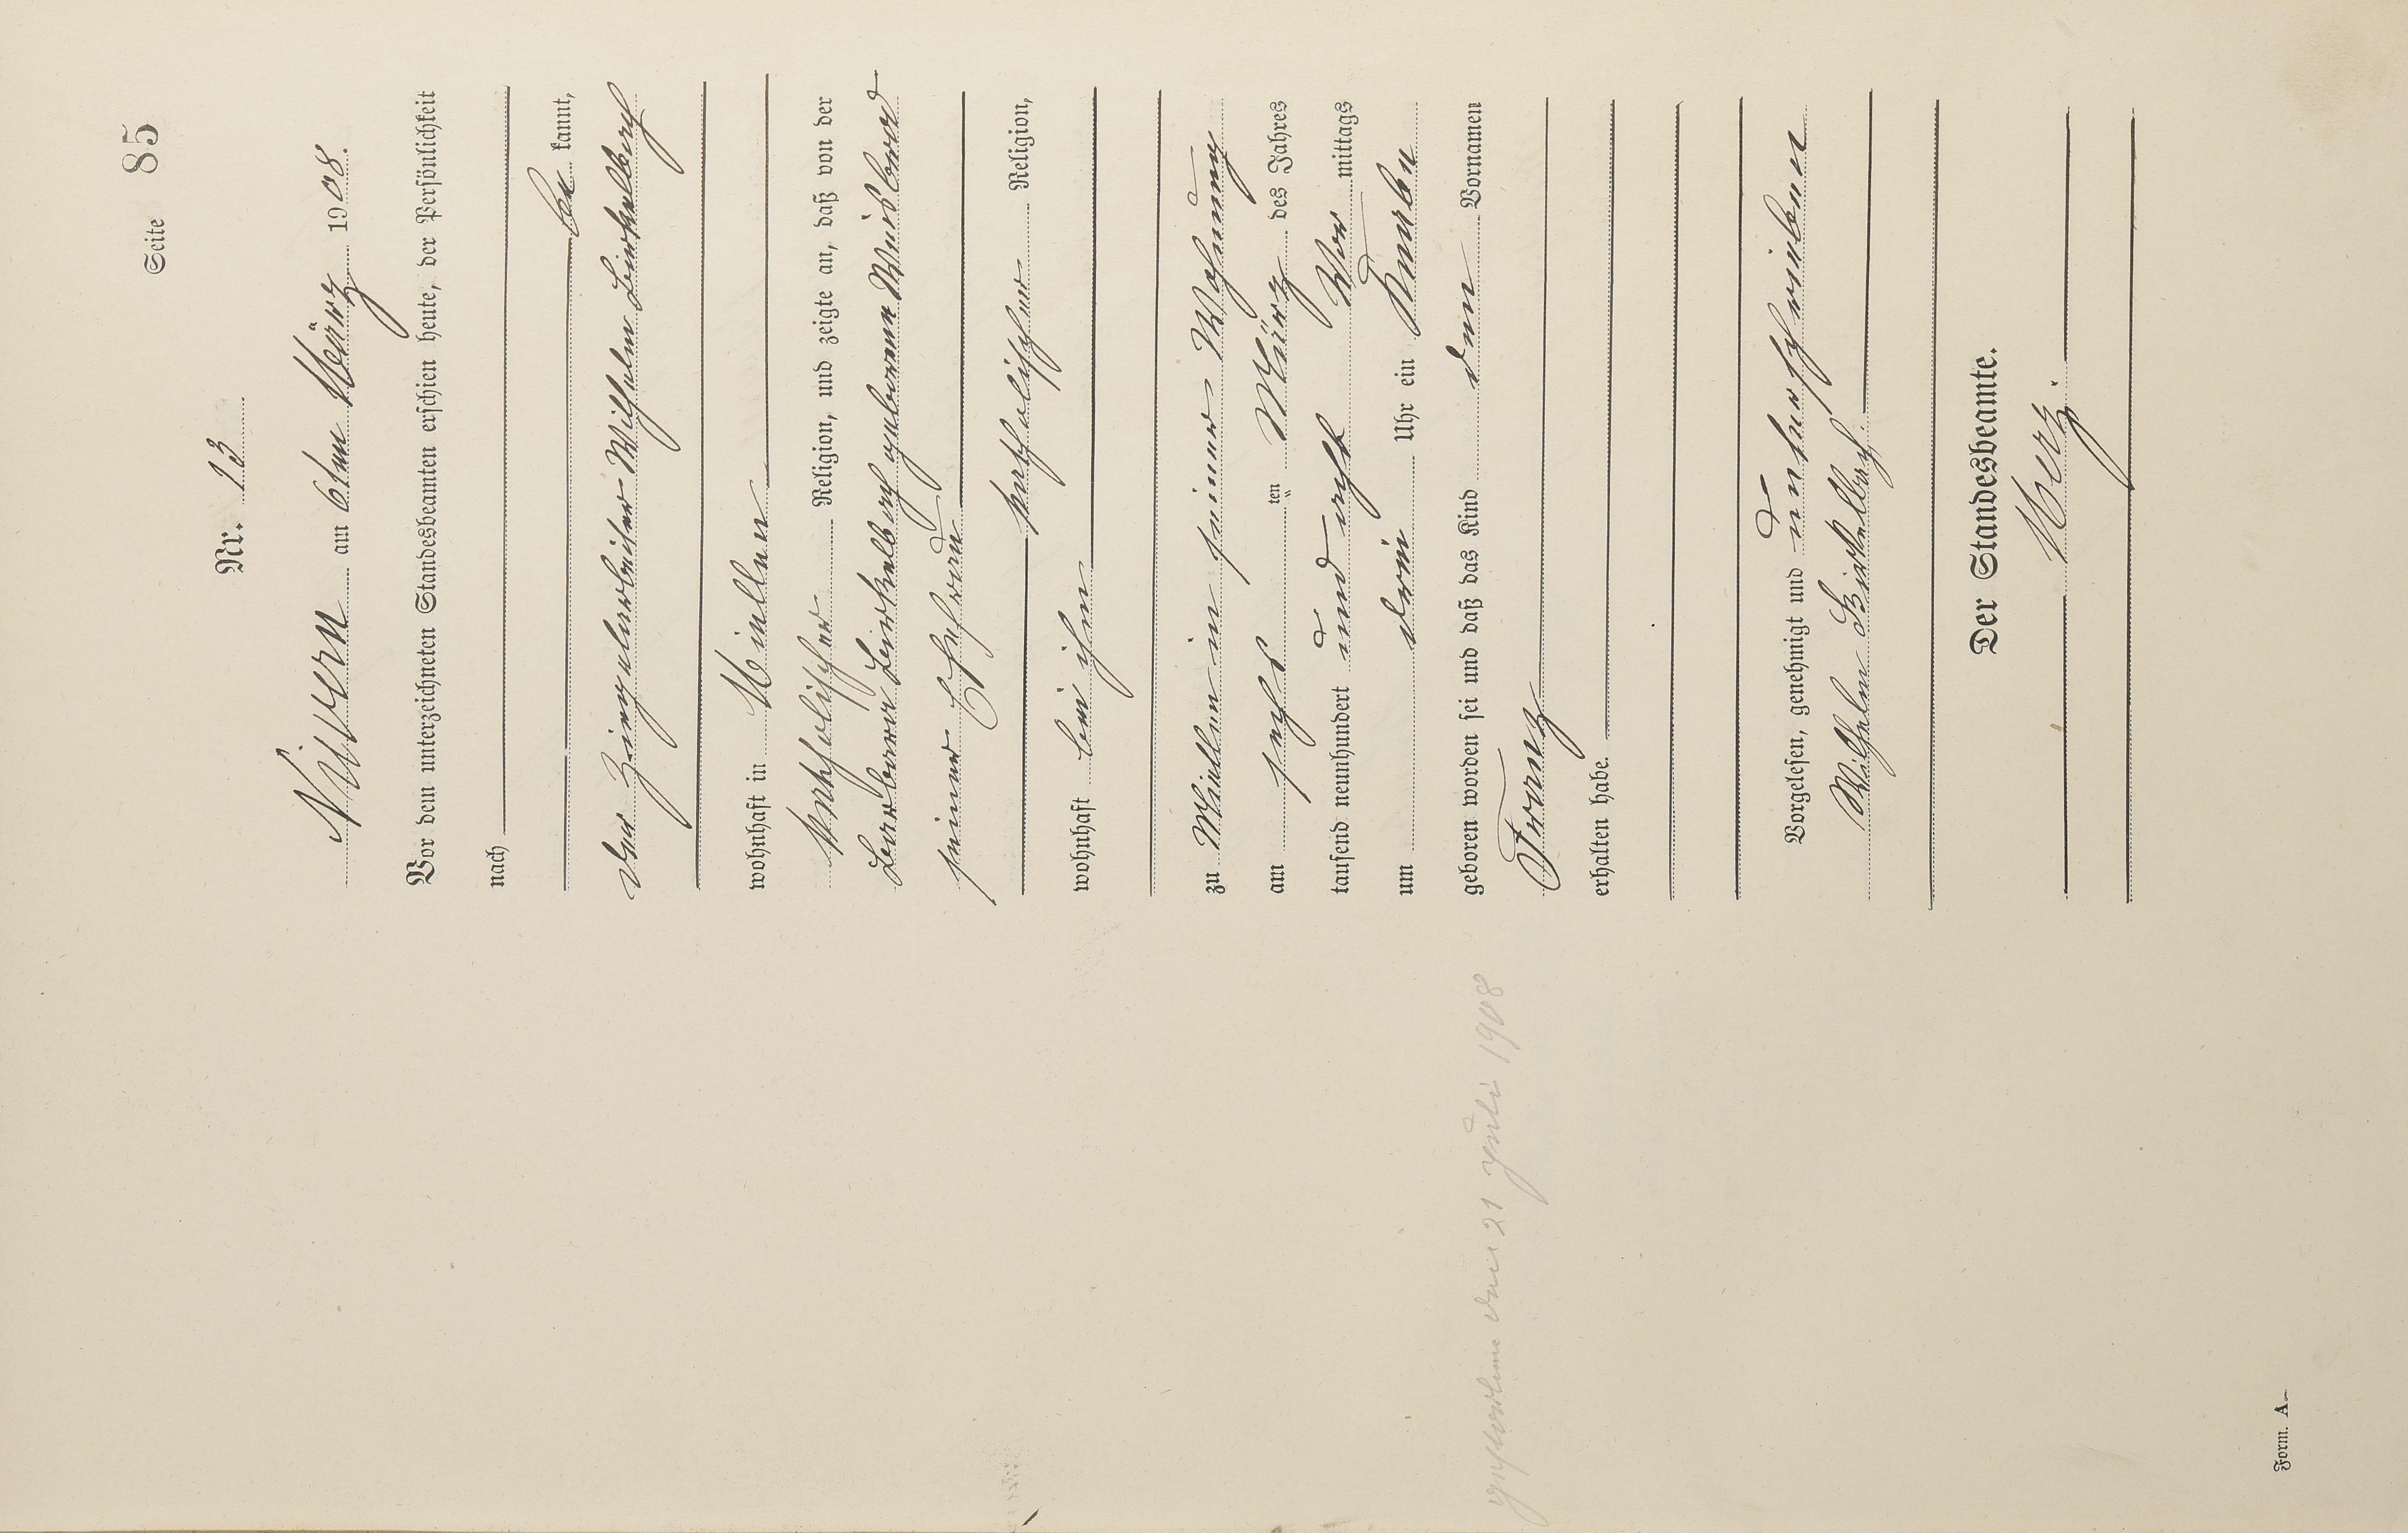 Seite 85
Nr. 13
Nievern am 6ten März 1908.
Vor dem unterzeichneten Standesbeamten erschien heute, der Persönlichkeit
nach
be kannt,
der Ziegelarbeiter Wilhelm Birkelbach
wohnhaft in Miellen
katholischer Religion, und zeigte an, daß von der
Barbara Birkelbach geborene Weisbrod
seiner Ehefrau
katholischer Religion,
wohnhaft bei ihm
zu Miellen in seiner Wohnung
am sechs ten März des Jahres
tausend neunhundert und acht Vor mittags
um drei Uhr ein Knabe
geboren worden sei und daß das Kind den Vornamen
Franz
erhalten habe.
Vorgelesen, genehmigt und unterschrieben
Wilhelm Birkelbach.
Der Standesbeamte.
Merz.
gestorben den 21 Juli 1908
Form. A.